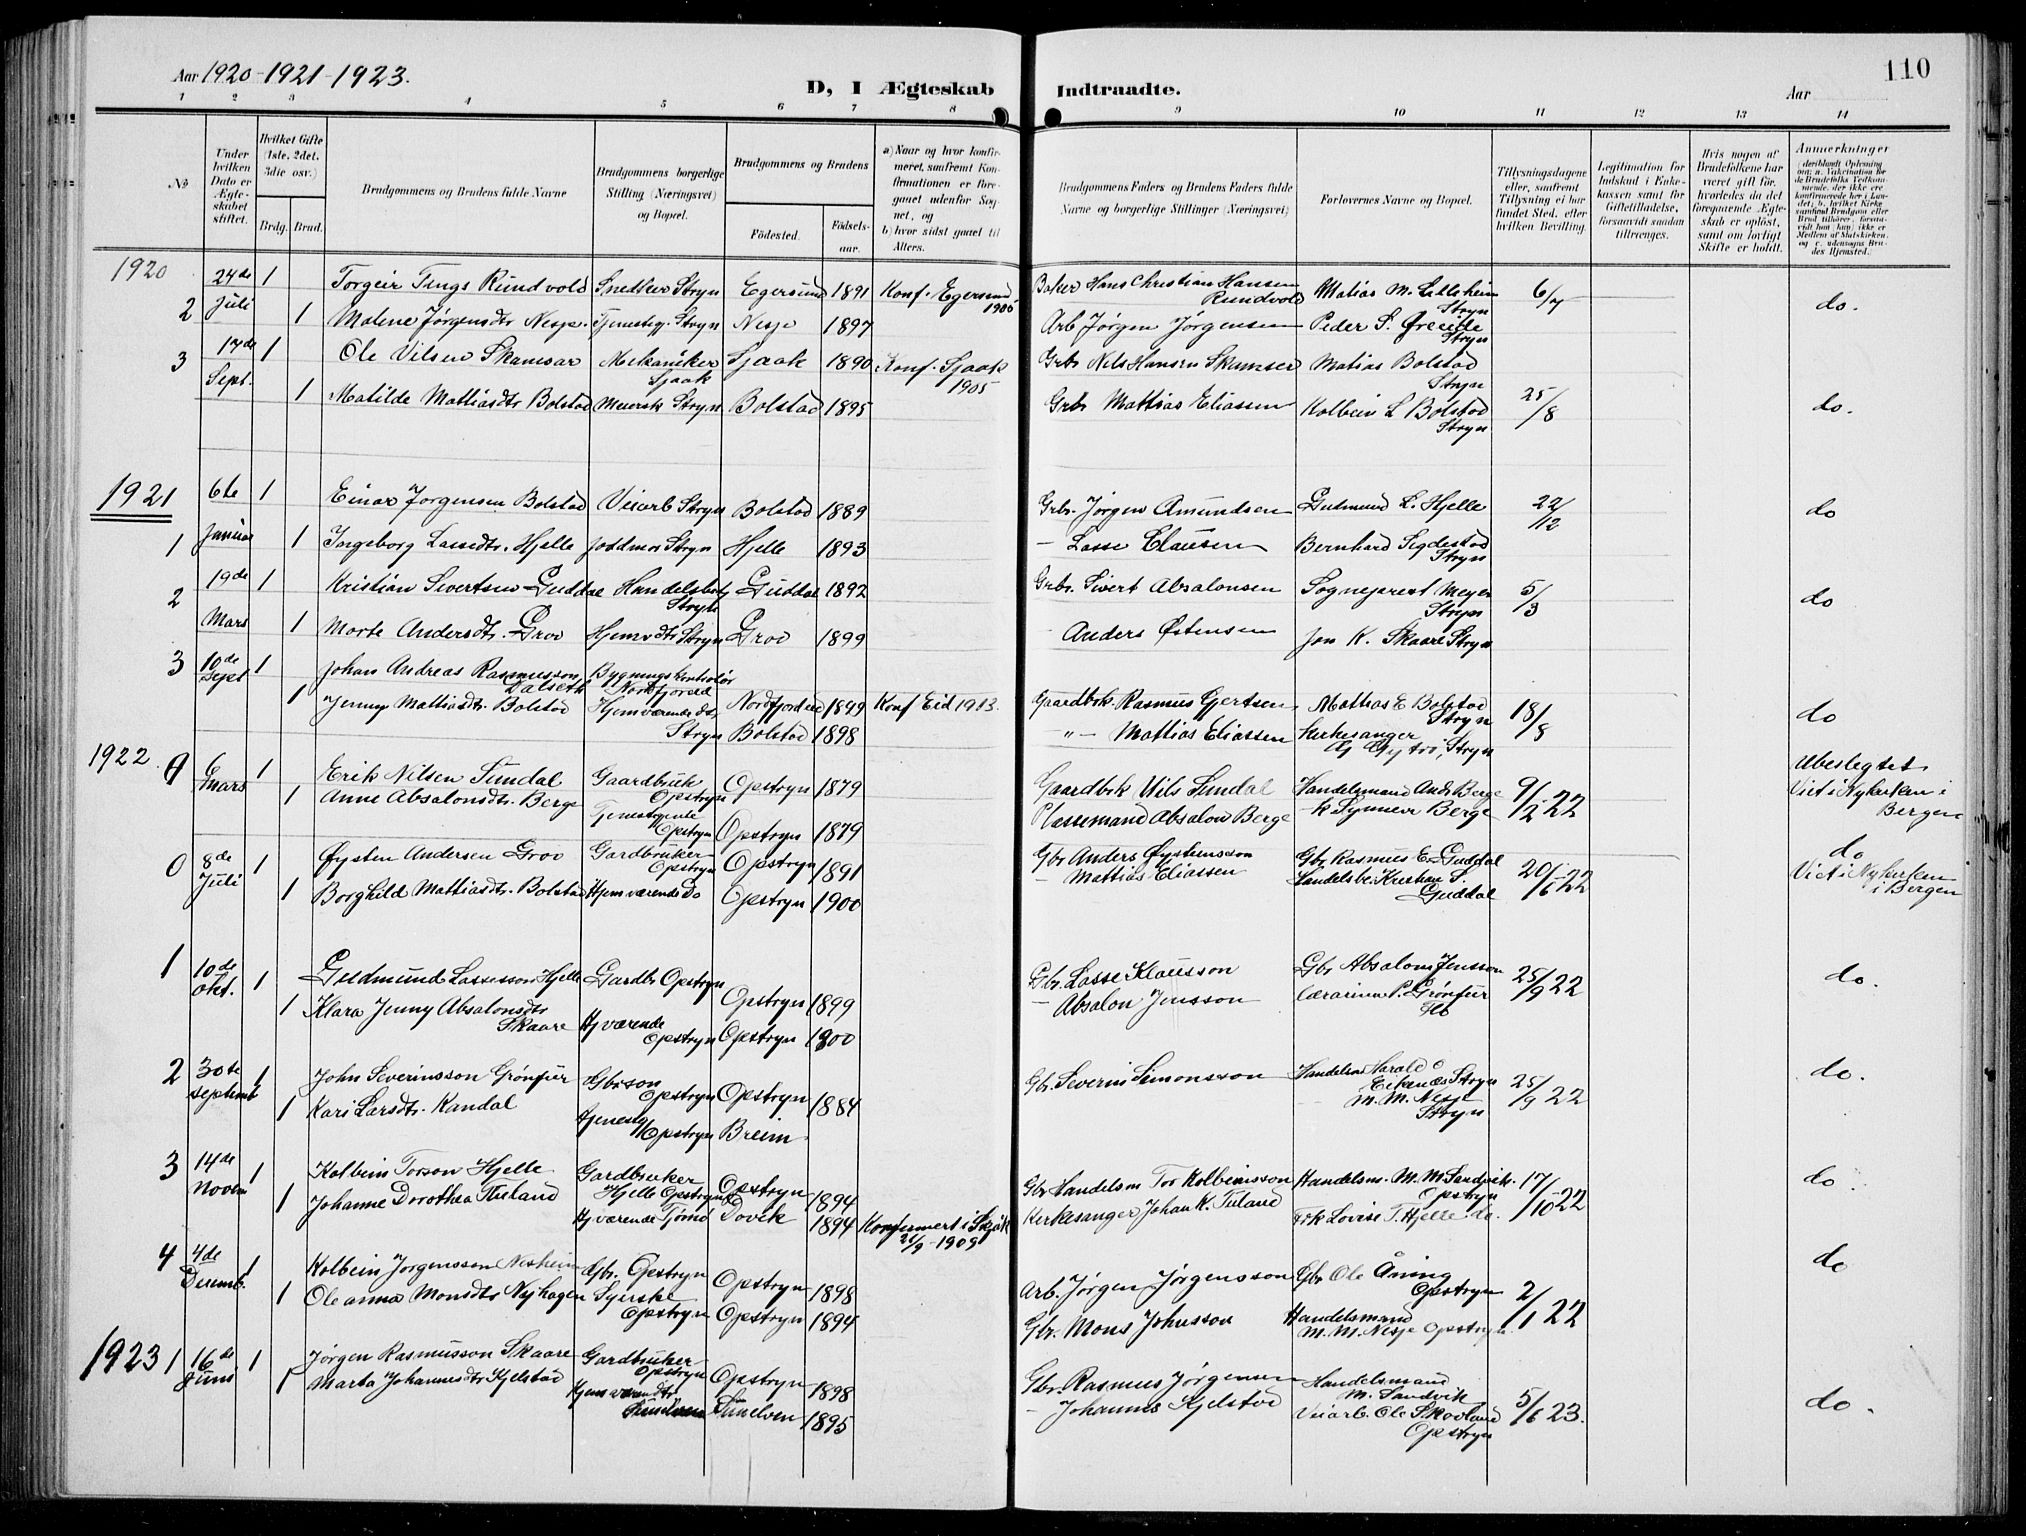 Aar 1920-1921-1923.
D, I Ægteskab Indtraadte.
Aar
110
1 2 3 4 5 6 7 8 9 10 11 12 13 14
No
Under hvilken Dato er Ægteskabet stiftet.
Hvilket Gifte (1ste, 2det, 3die osv.)
Brdg. Brud.
Brudgommens og Brudens fulde Navne
Brudgommens borgerlige Stilling (Næringsvei) og Bopæl.
Brudgommens og Brudens
Fødested.
Fødselsaar.
a) Naar og hvor konfirmeret, saafremt Konfirmationen er foregaaet udenfor Sognet, og
b) hvor sidst gaaet til Alters.
Brudgommens Faders og Brudens Faders fulde Navne og borgerlige Stillinger (Næringsvei)
Forlovernes Navne og Bopæl.
Tillysningsdagene eller, saafremt Tillysning ei har fundet Sted, efter hvilken Bevilling.
Legitimation for Indskud i Enkekassen samt for Giftetilladelse, forsaavidt saadan tiltrænges.
Hvis nogen af Brudefolkene har været gift før, hvorledes da det foregaaende Ægteskab er opløst, samt om lovligt Skifte er holdt.
Anmerkninger
1920
2 24de Juli 1 Torgeir Tengs Rundvold Snedker Stryn Egersund 1891 Konf. Egersund 1905 Baker Hans Christian Hansen Rundvold Matias M. Lillesheim Stryn 6/7 do.
1 Malene Jørgensdtr Nesje. Tjenesteg. Stryn Nesje 1897 Arb Jørgen Jørgensen Peder S. Øreeide Stryn
3 17de Sept. 1 Ole Nilsen Skamsar Mekaniker Skjaak Skjaak 1890 Konf. Skjaak 1905 Grbr Nils Hansen Skamsar Matias Bolstad Stryn 25/8 do.
1 Matilde Mattiasdtr Bolstad Meiersk Stryn Bolstad 1895 Grbr Mattias Eliassen Kolbein L Bolstad Stryn
1921
1 6te Januar 1 Einar Jørgensen Bolstad Veiarb Stryn Bolstad 1889 Grbr. Jørgen Amundsen Gudmund L. Hjelle 22/12 do
1 Ingeborg Lassedtr. Hjelle Jordmor Stryn Hjelle 1893 — Lasse Clausen Bernhard Segdestad Stryn
2 19de Mars 1 Kristian Sivertsen Guddal Handelsbetj Stryn Guddal 1892 Grbr. Sivert Absalonsen Sogneprest Meyer Stryn 5/3 do
1 Marte Andersdtr. Grov Hjemvdtr Stryn Grov 1899 — Anders Østensen Jon K. Skaare Stryn
3 10de Sept 1 Johan Andreas Rasmusson Dalseth Bygningskontrolør Nordfjoreid Nordfjordeid 1899 Konf Eid 1913. Gaardbrk. Rasmus Gjertsen Mathias E Bolstad Stryn 18/8 do
1 Jenny Mattiasdtr. Bolstad Hjemværende dtr. Stryn Bolstad 1898 " — Mattias Eliassen Kirkesanger Stryn
1922.
6 mars 1 Erik Nilsen Sundal Gaardbruk Opstryn Opstryn 1879 Gaardbrk Nils Sundal Handelsmand And. Berge 9/2 22 Ubeslegtet Viet i Nykirken i Bergen
1 Anne Absalonsdtr. Berge Tjenestepenle Opstryn Opstryn 1879 Plassemand Absalon Berge K Synneve Berge
0 8de Juli 1 Øysten Andersen Grov Gardbruker Opstryn Opstryn 1891 Gbr Anders Øystensson Gbr Rasmus E Guddal 20/6 22 do Viet i Nykirken i Bergen
1 Borghild Mattiasdtr. Bolstad Hjemværende Do Opstryn 1900 — Mattias Eliassen Handelsbe. Kristian S. Guddal
1 10de Okt. 1 Gudmund Lassesson Hjelle Gardbr Opstryn Opstryn 1899 Gbr. Lasse Klausson Gbr Absalon Jensson 25/9 22 do.
1 Klara Jenny Absalonsdtr Skaare Hjværende Opstryn Opstryn 1900 — Absalon Jensson P. Grønfur
2 30te septemb 1 John Severinsson Grønfur Gbrson Opstryn Opstryn 1884 Gbr. Severin Simonsson Handelsm Harald Eikenæs Stryn 25/9 22 do.
1 Kari Larsdtr. Kandal Tjenestg Opstryn Breim M. M. Nesje Stryn
3 14de Novem 1 Kolbein Torson Hjelle Gardbruker Hjelle Opstryn Opstryn 1894 Gbr Handelsm Tor Kolbeinsson Handelsm. M. M. Sandvik Opstryn 17/10 22 do.
1 Johanne Dorothea Tuland Hjværende Dovik 1894 Konfirmert i Skjåk 21/9-1909 Kirkesanger Johan K. Tuland Frk Lovise T. Hjelle do.
4 4de Decemb. 1 Kolbein Jørgensson Nesheim Gbr. Opstryn Opstryn 1898 Arb. Jørgen Jørgensson Gbr Ole Åning Opstryn 2/1 22 do
1 Oleanna Monsdtr Nyhagen Syerske Opstryn Opstryn 1894 Gbr. Mons Johnsson Handelsmand M. M. Nesje Opstryn.
1923 1 16de Juni 1 Jørgen Rasmusson Skaare Gardbruker Opstryn Opstryn 1898 Gbr. Rasmus Jørgensen Handelsmand M. Sandvik 5/6 23. do.
1 Marta Johannesdtr Kjelstad Hjemværendtr. Sunelven Sunelven 1895 — Johannes Kjelstad Veiarb. Ole Skovland Opstryn